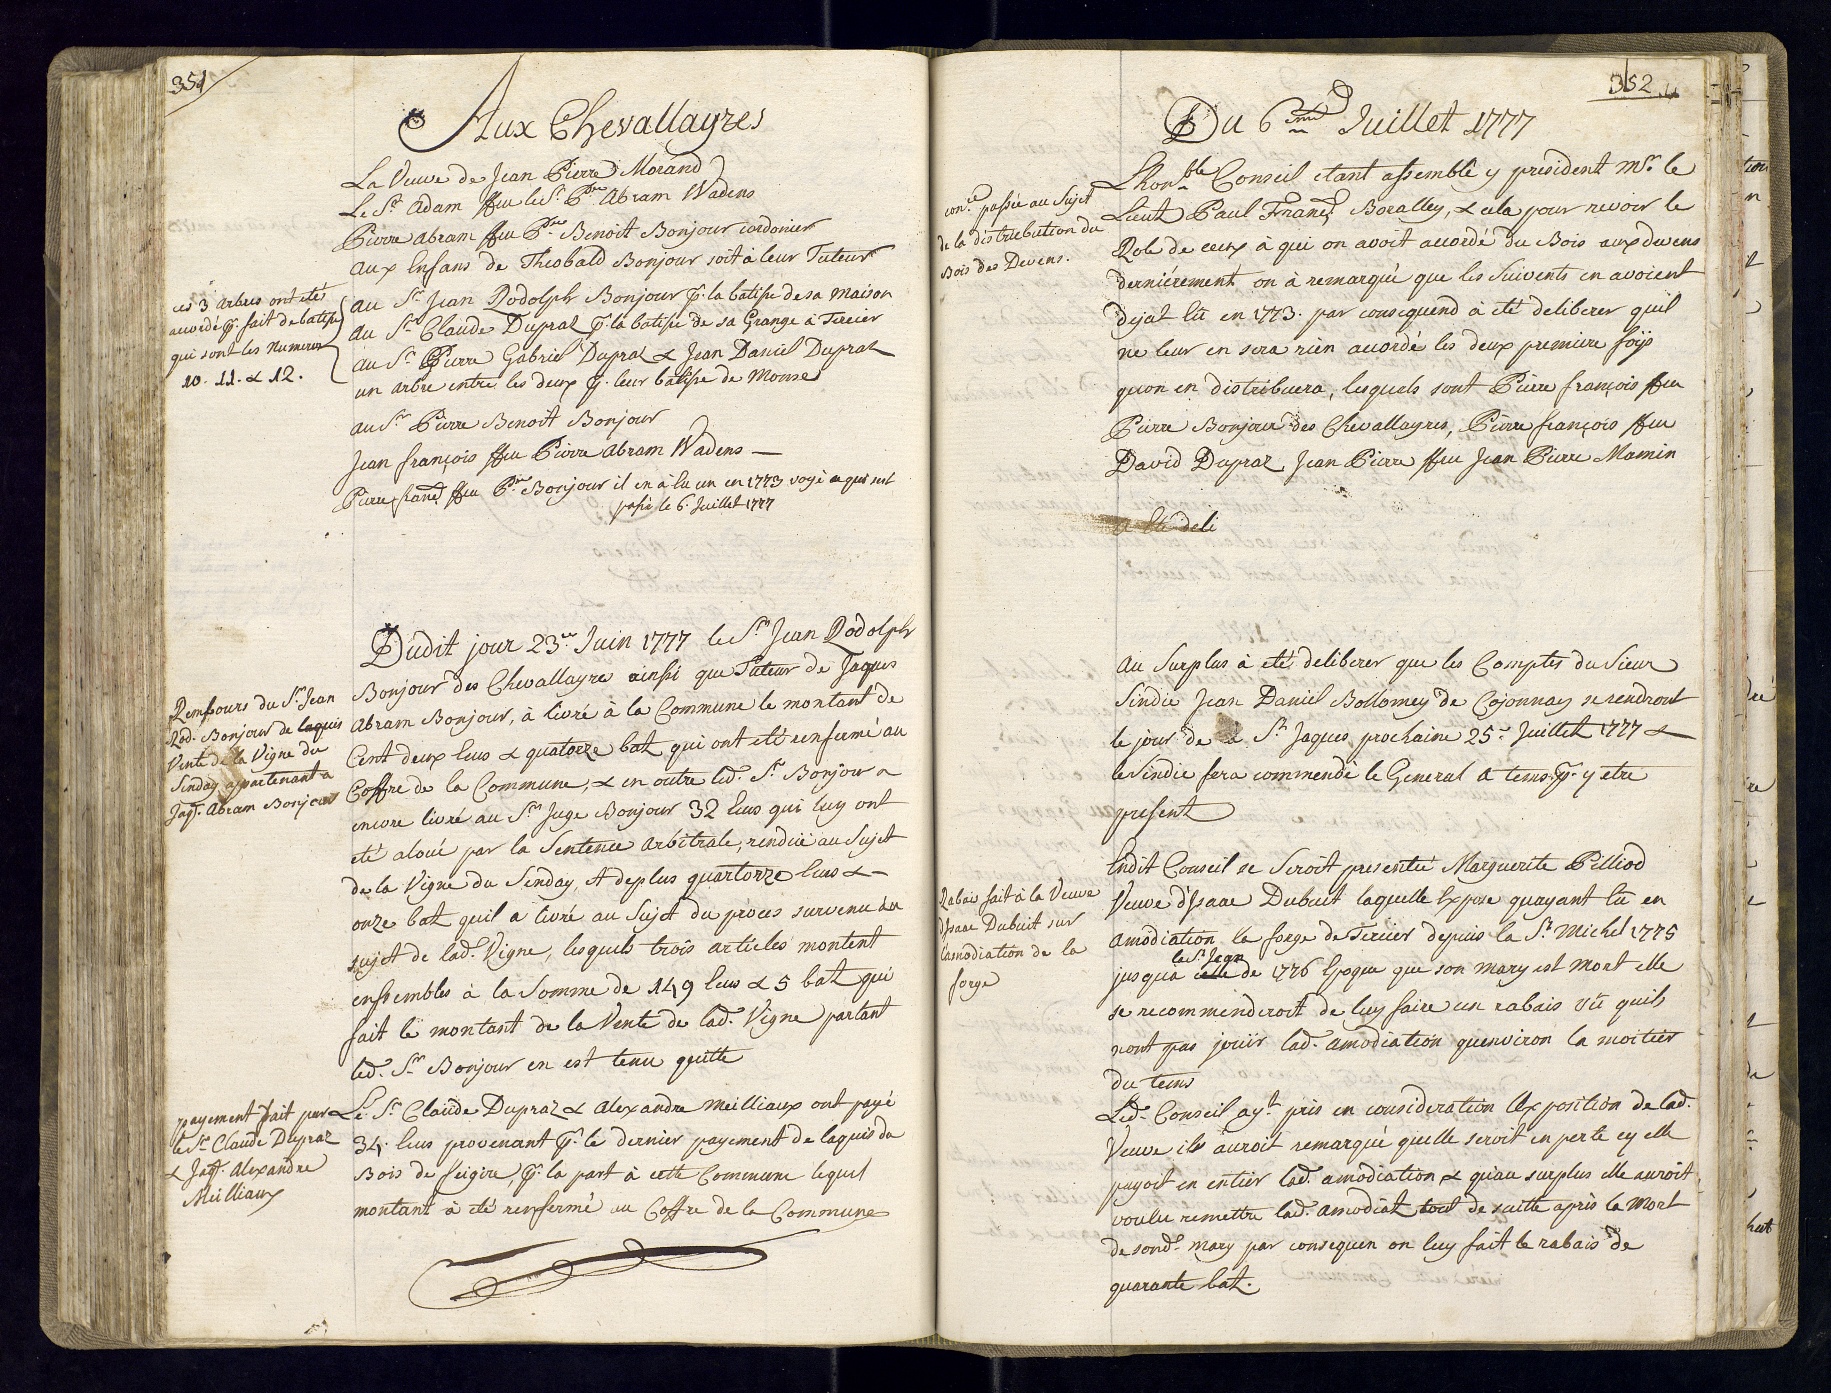 351
Aux Chevallayres
La Veuve de Jean Pierre Morand
Le Sr. Adam ffeu le Sr. Pre. Abram Wadens
Pierre Abram ffeu Pre. Benoit Bonjour cordonier
aux Enfans de Theobald Bonjour soit à leur Tuteur
ces 3 arbres ont été
accordé p. fait de batisse
qui sont les Numeros
10. 11. & 12.
au Sr. Jean Rodolph Bonjour p. la batisse de sa maison
au Sr. Claude Dupraz p. la batisse de sa Grange à Tercier
au Sr. Pierre Gabriel Dupraz & Jean Daniel Dupraz
un arbre entre les deux p. leur batisse de
au Sr. Pierre Benoit Bonjour
Jean françois ffeu Pierre Abram Wadens —
Pierre franç. ffeu Pre. Bonjour il en à êu un en 1773 voyé ce qui s'est
passé le 6. Juillet 1777
Dudit jour 23.e Juin 1777 le Sr. Jean Rodolph
Bonjour des Chevallayre ainsi que Tuteur de Jaques
Abram Bonjour, à livré à la Commune le montant de
Cent deux Ecus & quatorze batz qui ont eté renfermé au
Coffre de la Commune, & en outre led. Sr. Bonjour a
encore livré au Sr. Juge Bonjour 32 Ecus qui luy ont
eté aloué par la Sentence arbitrale, rendüe au Sujet
de la Vigne du Sinday, et deplus quartorze Ecus &
onze batz quil a livré au Sujet du proces survenu au
sujet de lad. Vigne, lesquels trois articles montent
enssembles à la Somme de 149 Ecus & 5 batz qui
fait le montant de la Vente de lad. Vigne partant
led. Sr. Bonjour en est tenu quitte
Remfours du Sr. Jean
Rod. Bonjour de laquis
Vente de la Vigne du
Sinday appartenant a
Jaq. Abram Bonjour
payement fait par
le Sr. Claude Dupraz
& Jaq. Alexandre
Meilliaux
Le Sr. Claude Dupraz & Alexandre Meilliaux ont payé
34. Ecus provenant p. le dernier payement de laquis du
Bois de feigire, p. la part à cette Commune lequel
montant à eté renfermé au Coffre de la Commune
352
Du 6me Juillet 1777
conce. passée au Sujet
de la distribution du
Bois des Devens.
Lhonble. Conseil etant assemblé y président Mr. le
Lieut. Paul Franç. Boralley, & cela pour revoir le
Role de ceux à qui on avoit accordé du Bois aux devens
derniérement on à remarqué que les Suivents en avoient
dejat êu en 1773. par consequend à eté deliberer quil
ne leur en sera rien accordé les deux premiere foÿs
quon en distribuera, lesquels sont Pierre françois ffeu
Pierre Bonjour des Chevallayres, Pierre françois ffeu
David Dupraz, Jean Pierre ffeu Jean Pierre Mamin
a eté deli
au Surplus à eté deliberer que les Comptes du Sieur
Sindic Jean Daniel Bollomey de Cojonnay se rendront
le jour de la St. Jaques prochaine 25e Juillet 1777 &
le Sindic fera commendé le General a tems p. y etre
present
Rabais fait à la Veuve
d'Isaac Dubuit sur
l'amodiation de la
forge
Endit Conseil se Seroit presentée Marguerite Pilliod
Veuve d'Isaac Dubuit laquelle Expose quayant êu en
amodiation la forge de Tercier depuis la St. Michel 1775
la St. Jean
jusqua celle de 1776 Epoque que son mary est mort elle
se recommenderoit de luy faire un rabais vû quils
nont pas joüir lad. amodiation quenviron la moitier
du tems
Led. Conseil ayt. pris en consideration l'exposition de lad.
Veuve ils auroit remarqué quelle seroit en perte sy elle
payoit en entier lad. amodiation & quau surplus elle auroit
voulu remettre lad. amodiat. tout de suitte après la Mort
de sond. mary par consequen on luy fait le rabais de
quarante batz.